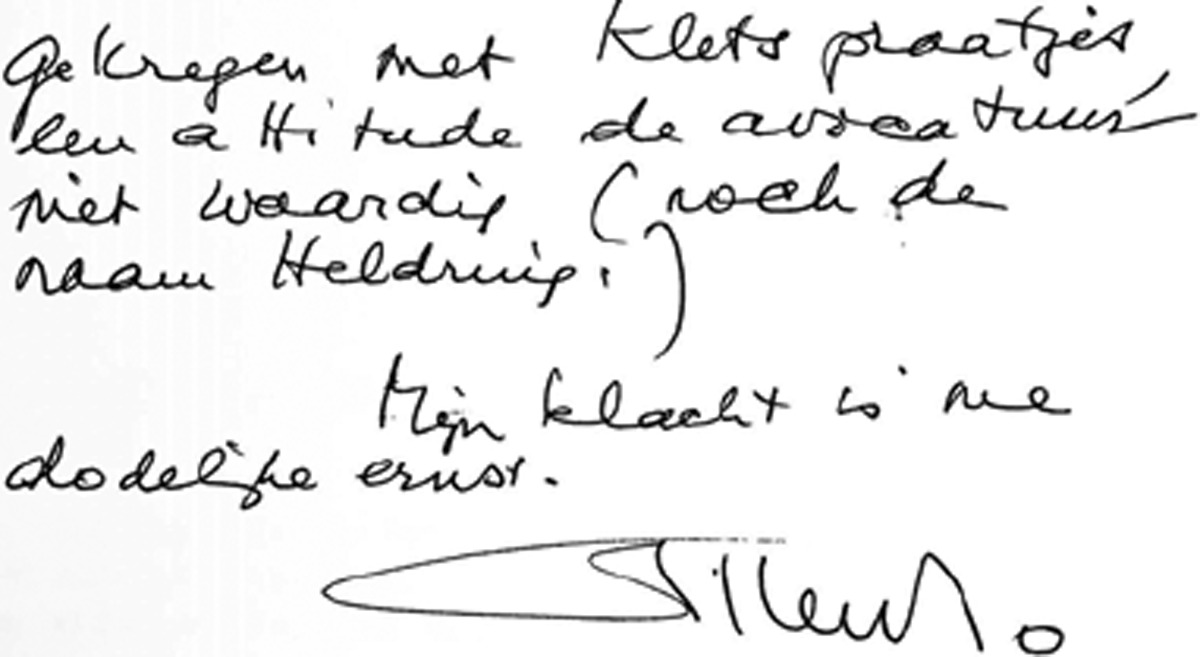 gekregen met kletspraatjes
een attitude de avocatuur
niet waardig (noch de
naam Heldring.)
Mijn klacht is me
dodelijke ernst.